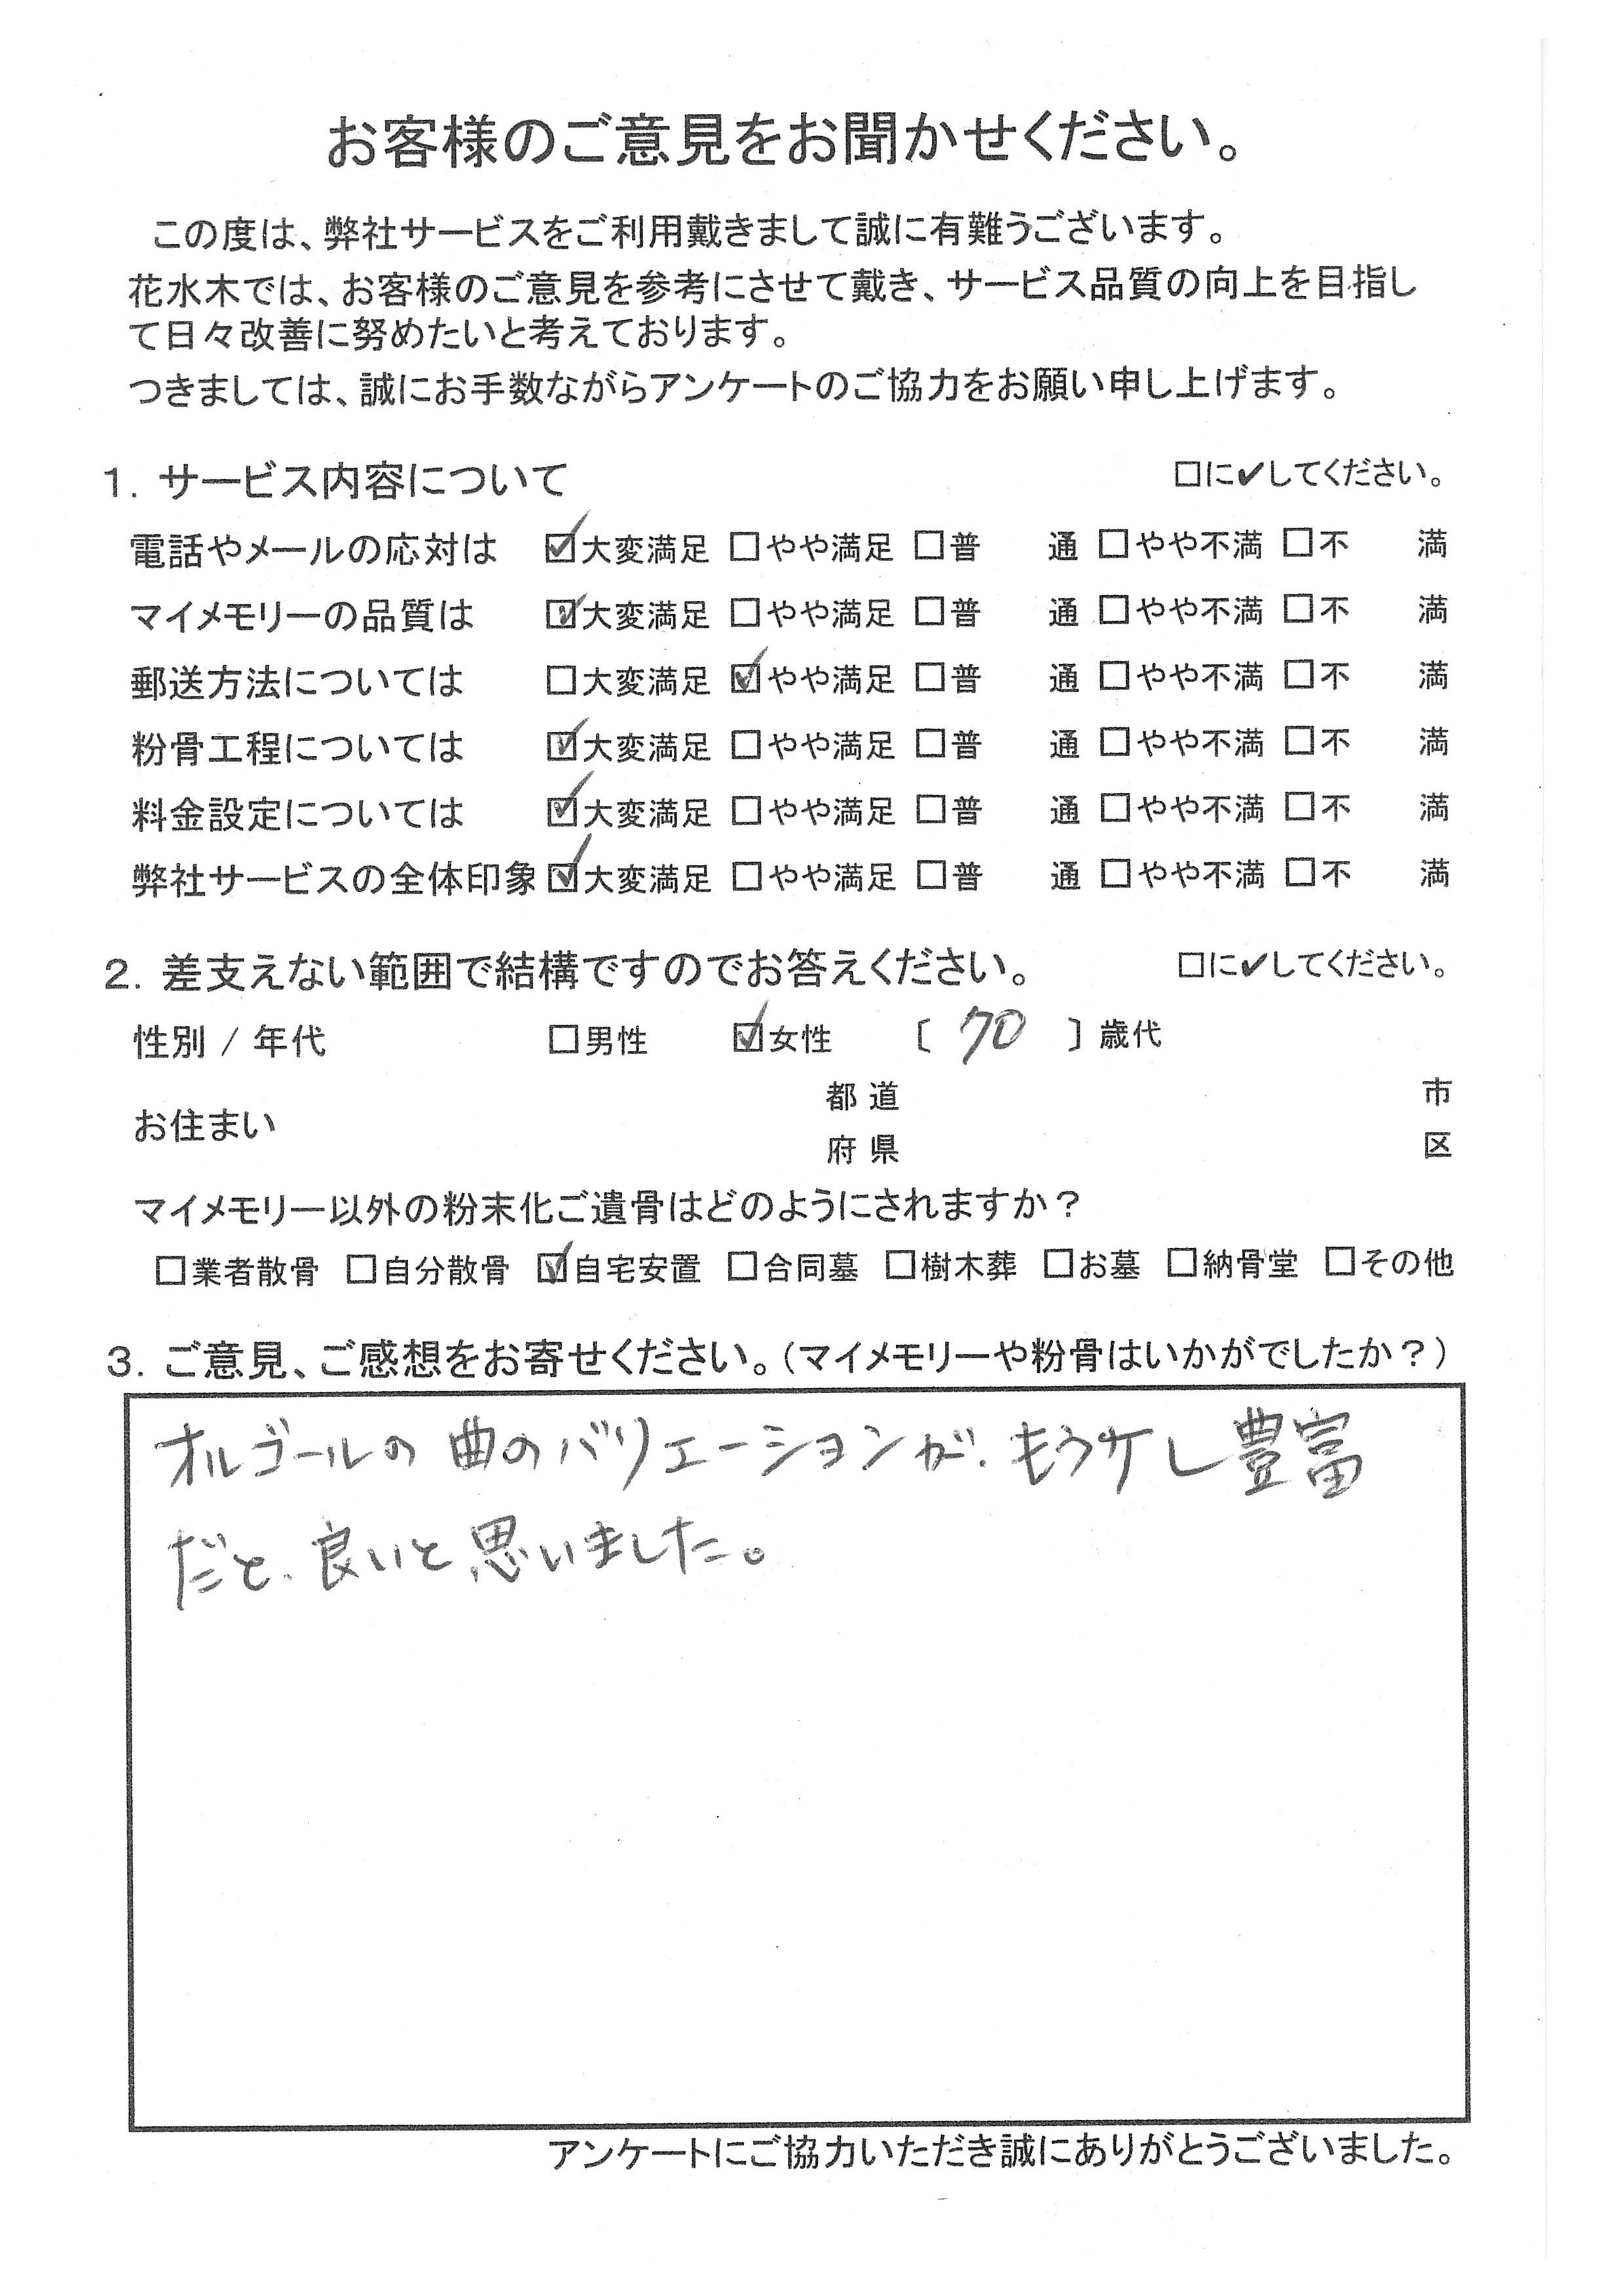 お客様のご意見をお聞かせください。
この度は、弊社サービスをご利用戴きまして誠に有難うございます。
花水木では、お客様のご意見を参考にさせて戴き、サービス品質の向上を目指し
て日々改善に努めたいと考えております。
つきましては、誠にお手数ながらアンケートのご協力をお願い申し上げます。
1. サービス内容について □に✔してください。
電話やメールの応対は ☑大変満足 □やや満足 □普 通 □やや不満 □不 満
マイメモリーの品質は ☑大変満足 □やや満足 □普 通 □やや不満 □不 満
郵送方法については □大変満足 ☑やや満足 □普 通 □やや不満 □不 満
粉骨工程については ☑大変満足 □やや満足 □普 通 □やや不満 □不 満
料金設定については ☑大変満足 □やや満足 □普 通 □やや不満 □不 満
弊社サービスの全体印象 ☑大変満足 □やや満足 □普 通 □やや不満 □不 満
2. 差支えない範囲で結構ですのでお答えください。 □に✔してください。
性別 / 年代 □男性 ☑女性 〔 70 〕歳代
都道 市
お住まい
府県 区
マイメモリー以外の粉末化ご遺骨はどのようにされますか？
□業者散骨 □自分散骨 ☑自宅安置 □合同墓 □樹木葬 □お墓 □納骨堂 □その他
3. ご意見、ご感想をお寄せください。（マイメモリーや粉骨はいかがでしたか？）
オルゴールの曲のバリエーションが、もう少し豊富
だと、良いと思いました。
アンケートにご協力いただき誠にありがとうございました。